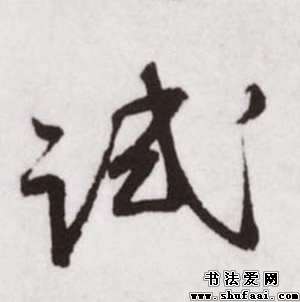 试
书法爱网
www.shufaai.com